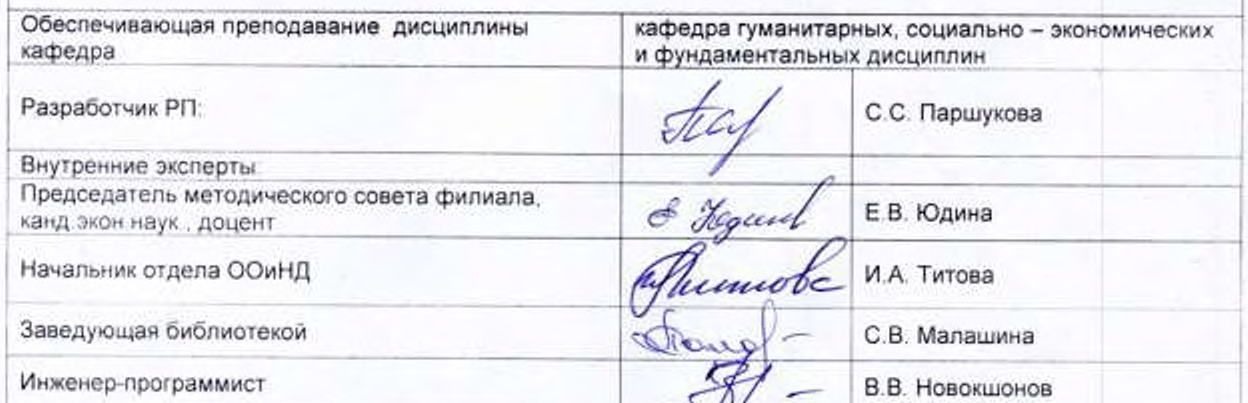 Обеспечивающая преподавание дисциплины кафедра гуманитарных, социально – экономических
кафедра и фундаментальных дисциплин
Разработчик РП: С.С. Паршукова
Внутренние эксперты:
Председатель методического совета филиала,
канд.экон.наук., доцент Е.В. Юдина
Начальник отдела ООиНД И.А. Титова
Заведующая библиотекой С.В. Малашина
Инженер-программист В.В. Новокшонов